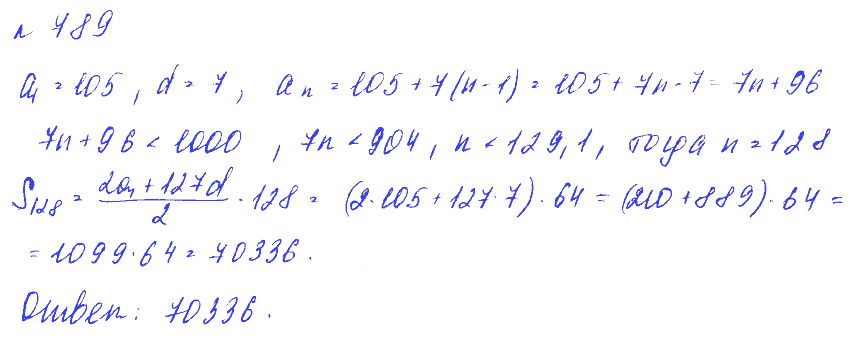 н 789
a₁ = 105, d = 7, aₙ = 105 + 7(n - 1) = 105 + 7n - 7 = 7n + 96
7n + 96 < 1000, 7n < 904, n < 129,1, тогда n = 128
S₁₂₈ = (2a₁ + 127d)/2 · 128 = (2·105 + 127·7)·64 = (210 + 889)·64 =
= 1099·64 = 70336.
Ответ: 70336.